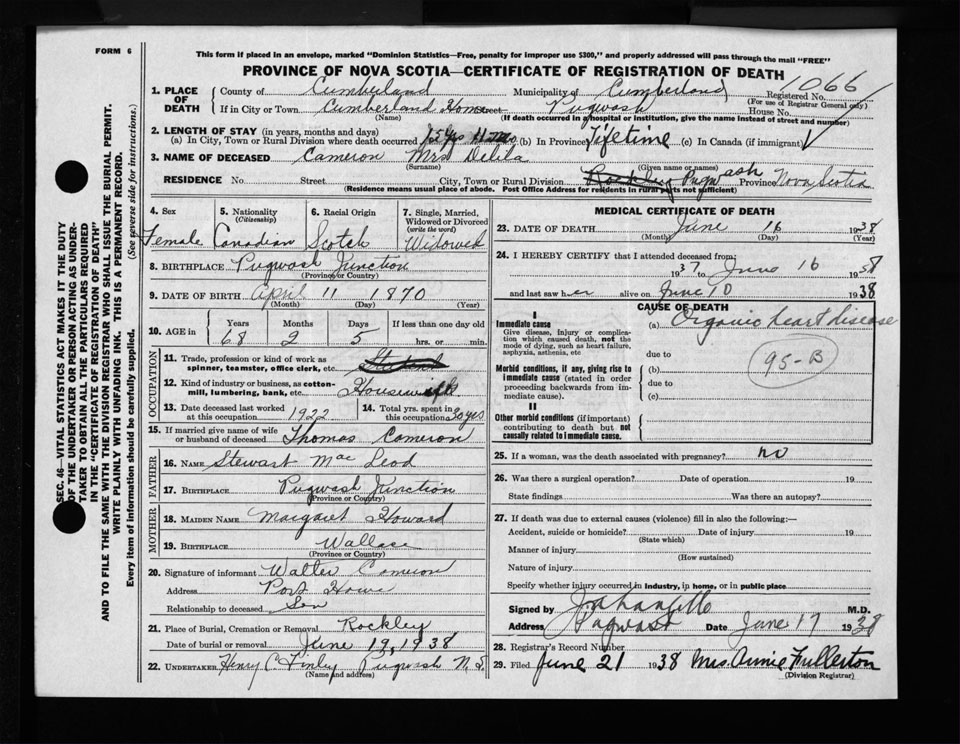 FORM 6
This form if placed in an envelope, marked "Dominion Statistics—Free, penalty for improper use $300," and properly addressed will pass through the mail "FREE"
PROVINCE OF NOVA SCOTIA—CERTIFICATE OF REGISTRATION OF DEATH
1. PLACE OF DEATH
County of Cumberland Municipality of Cumberland Registered No. 1066
(For use of Registrar General only)
If in City or Town Cumberland Home Street Pugwash House No.
(Name) (If death occurred in a hospital or institution, give the name instead of street and number)
2. LENGTH OF STAY (in years, months and days)
(a) In City, Town or Rural Division where death occurred 11 mo (b) In Province Lifetime (c) In Canada (if immigrant)
3. NAME OF DECEASED Cameron Mrs Delila
(Surname) (Given name or names)
RESIDENCE No. Street City, Town or Rural Division Rockley Pugwash Province Nova Scotia
(Residence means usual place of abode. Post Office Address for residents in rural parts not sufficient)
SEC. 46—VITAL STATISTICS ACT MAKES IT THE DUTY
OF THE UNDERTAKER OR PERSON ACTING AS UNDER-
TAKER TO OBTAIN ALL THE PARTICULARS REQUIRED
IN THE "CERTIFICATE OF REGISTRATION OF DEATH"
AND TO FILE THE SAME WITH THE DIVISION REGISTRAR WHO SHALL ISSUE THE BURIAL PERMIT.
WRITE PLAINLY WITH UNFADING INK. THIS IS A PERMANENT RECORD.
Every item of information should be carefully supplied. (See reverse side for instructions.)
4. Sex 5. Nationality (Citizenship) 6. Racial Origin 7. Single, Married, Widowed or Divorced (write the word)
Female Canadian Scotch Widowed
8. BIRTHPLACE Pugwash Junction
(Province or Country)
9. DATE OF BIRTH April 11 1870
(Month) (Day) (Year)
10. AGE in Years Months Days If less than one day old
68 2 5 hrs. or min.
OCCUPATION
11. Trade, profession or kind of work as spinner, teamster, office clerk, etc.
12. Kind of industry or business, as cotton-mill, lumbering, bank, etc. Housework
13. Date deceased last worked at this occupation 1922 14. Total yrs. spent in this occupation 30 yrs
15. If married give name of wife or husband of deceased Thomas Cameron
FATHER
16. NAME Stewart Mac Leod
17. BIRTHPLACE Pugwash Junction
(Province or Country)
MOTHER
18. MAIDEN NAME Margaret Howard
19. BIRTHPLACE Wallace
(Province or Country)
20. Signature of informant Walter Cameron
Address Port Howe
Relationship to deceased Son
21. Place of Burial, Cremation or Removal Rockley
Date of burial or removal June 19, 1938
22. UNDERTAKER Henry C Finley Pugwash N.S.
(Name and address)
MEDICAL CERTIFICATE OF DEATH
23. DATE OF DEATH June 16 1938
(Month) (Day) (Year)
24. I HEREBY CERTIFY that I attended deceased from:
1937 to June 16 1938
and last saw her alive on June 10 1938
CAUSE OF DEATH
I
Immediate cause (a) Organic heart disease
Give disease, injury or complication which caused death, not the mode of dying, such as heart failure, asphyxia, asthenia, etc
due to 95-B
Morbid conditions, if any, giving rise to immediate cause (stated in order proceeding backwards from immediate cause).
(b)
due to
(c)
II
Other morbid conditions (if important) contributing to death but not causally related to immediate cause.
25. If a woman, was the death associated with pregnancy? no
26. Was there a surgical operation? Date of operation 19
State findings Was there an autopsy?
27. If death was due to external causes (violence) fill in also the following:—
Accident, suicide or homicide? Date of injury 19
(State which)
Manner of injury
(How sustained)
Nature of injury
Specify whether injury occurred in industry, in home, or in public place
Signed by M.D.
Address Pugwash Date June 17 1938
28. Registrar's Record Number
29. Filed June 21 1938 Mrs. Annie Fullerton
(Division Registrar)